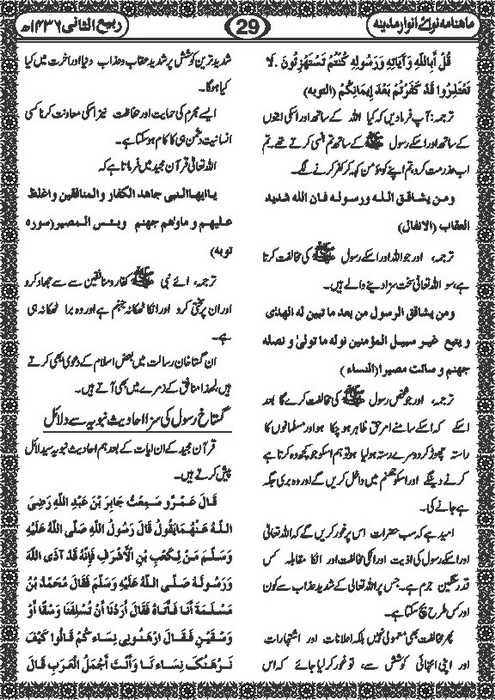 ماہنامہ نوائے انوار مدینہ
29
ربیع الثانی ۱۴۳۶ھ
قُلْ أَبِاللّٰهِ وَآيَاتِهِ وَرَسُوْلِهِ كُنْتُمْ تَسْتَهْزِئُونَ .لَا
تَعْتَذِرُوْا قَدْ كَفَرْتُمْ بَعْدَ إِيمَانِكُمْ (التوبه)
ترجمہ: آپ فرمادیں کہ کیا اللہ کے ساتھ اور اسکی آیتوں
کے ساتھ اور اسکے رسول ﷺ کے ساتھ تم ہنسی کرتے تھے۔ تم
اب عذر مت کرو تم اپنے کو مؤمن کہہ کر کفر کرنے لگے۔
ومن يشاقق الله ورسوله فان الله شديد
العقاب (الانفال)
ترجمہ، اور جو اللہ اور اسکے رسول ﷺ کی مخالفت کرتا
ہے، سو اللہ تعالیٰ سخت سزا دینے والے ہیں۔
ومن يشاقق الرسول من بعد ما تبين له الهدٰى
و يتبع غير سبيل المؤمنين نوله ما تولىٰ و نصله
جهنم و سائت مصيرا (النساء)
ترجمہ، اور جو شخص رسول ﷺ کی مخالفت کرے گا بعد
اسکے کہ اسکے سامنے امر حق ظاہر ہو چکا ہو اور مسلمانوں کا
راستہ چھوڑ کر دوسرے رستہ ہو لیا ہو تو ہم اسکو جو کچھ وہ کرتا ہے
کرنے دیںگے اور اسکو جھنم میں داخل کریں گے اور وہ بری جگہ
ہے جانے کی۔
امید ہے کہ سب حضرات اس پر غور کریں گے کہ اللہ تعالیٰ
اور اسکے رسول کی اذیت اور انکی مخالفت اور انکا مقابلہ کس
قدر سنگین جرم ہے۔ جس پر اللہ تعالیٰ کے شدید عذاب سے کون
اور کس طرح بچ سکتا ہے۔
پھر مخالفت بھی معمولی نہیں بلکہ اعلانات اور اشتہارات
اور اپنی انتہائی کوشش سے تو غور کر لیا جائے کہ اس
شدید ترین کوشش پر شدید عقاب و عذاب دنیا اور آخرت میں کیا
کیا ہوگا۔
ایسے مجرم کی حمایت اور حفاظت نیز اسکی معاونت کرنا کسی
انسانیت دشمن ہی کا کام ہو سکتا ہے۔
اللہ تعالیٰ قرآن مجید میں فرماتا ہے کہ
يا ايها النبى جاهد الكفار والمنافقين واغلظ
عليهم و ماوٰهم جهنم وبئس المصير (سوره
توبه)
ترجمہ، اے نبی ﷺ کفار و منافقین سے سے جہاد کرو
اور ان پر سختی کرو اور انکا ٹھکانہ جہنم ہے اور وہ برا ٹھکانہ ہی
ہے۔
ان گستاخان رسالت میں بعض اسلام کے دعویٰ بھی کرتے
ہیں، لہذا منافق کے زمرے میں بھی آتے ہیں۔
گستاخ رسول کی سزا احادیث نبویہ سے دلائل
قرآن مجید کے ان آیات کے بعد ہم احادیث نبویہ سے دلائل
پیش کرتے ہیں۔
قَالَ عَمْرٌو سَمِعْتُ جَابِرَ بْنَ عَبْدِ اللّٰهِ رَضِىَ
اللّٰهُ عَنْهُمَا يَقُوْلُ قَالَ رَسُوْلُ اللّٰهِ صَلَّى اللّٰهُ عَلَيْهِ
وَسَلَّمَ مَنْ لِكَعْبِ بْنِ الْأَشْرَفِ فَإِنَّهُ قَدْ آذَى اللّٰهَ
وَرَسُوْلَهُ صَلَّى اللّٰهُ عَلَيْهِ وَسَلَّمَ فَقَالَ مُحَمَّدُ بْنُ
مَسْلَمَةَ أَنَا فَأَتَاهُ فَقَالَ أَرَدْنَا أَنْ تُسْلِفَنَا وَسْقًا أَوْ
وَسْقَيْنِ فَقَالَ ارْهَنُوْنِى نِسَاءَكُمْ قَالُوْا كَيْفَ
نَرْهَنُكَ نِسَاءَ نَا وَأَنْتَ أَجْمَلُ الْعَرَبِ قَالَ